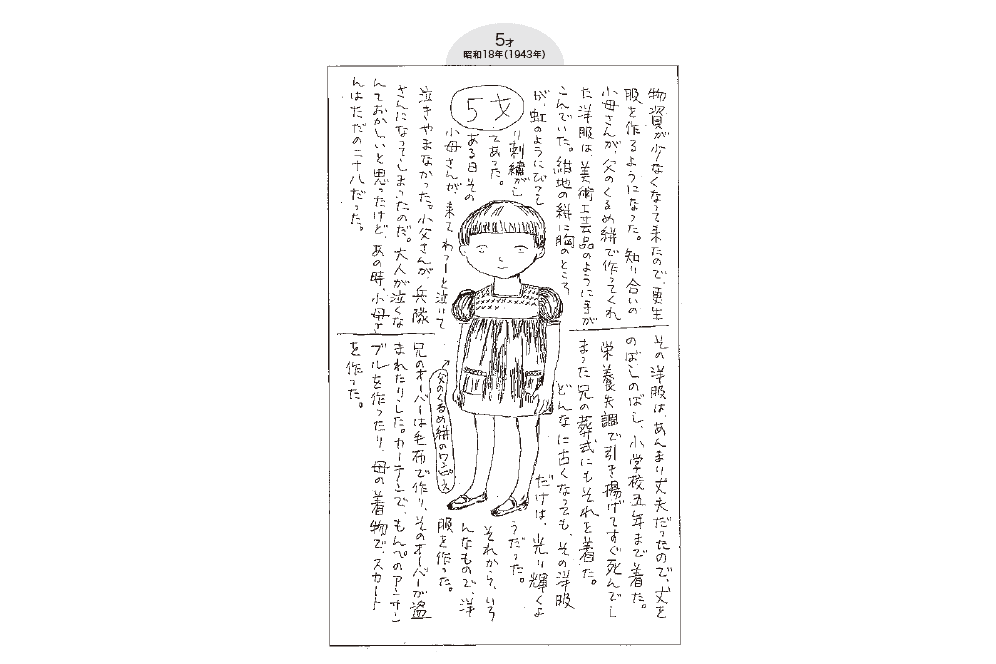 5才
昭和18年(1943年)
物資が少なくなって来たので、更生
服を作るようになった。知り合いの
小母さんが、父のくるめ絣で作ってくれ
た洋服は、美術工芸品のように手が
こんでいた。紺地の絣に胸のところ
が、虹のようにびっし
り刺繍がし
てあった。
5才
ある日その
小母さんが、来て、わーっと泣いて
泣きやまなかった。小父さんが、兵隊
さんになってしまったのだ。大人が泣くな
んておかしいと思ったけど、あの時、小母さ
んはただの二十八だった。
その洋服は、あんまり丈夫だったので、丈を
のばしのばし、小学校五年まで着た。
栄養失調で引き揚げてすぐ死んでし
まった兄の葬式にもそれを着た。
どんなに古くなっても、その洋服
だけは、光り輝くよ
うだった。
それから、いろ
んなもので、洋
服を作った。
父のくるめ絣のワンピース
兄のオーバーは毛布で作り、そのオーバーが盗
まれたりした。カーテンで、もんぺのアンサン
ブルを作ったり、母の着物で、スカート
を作った。